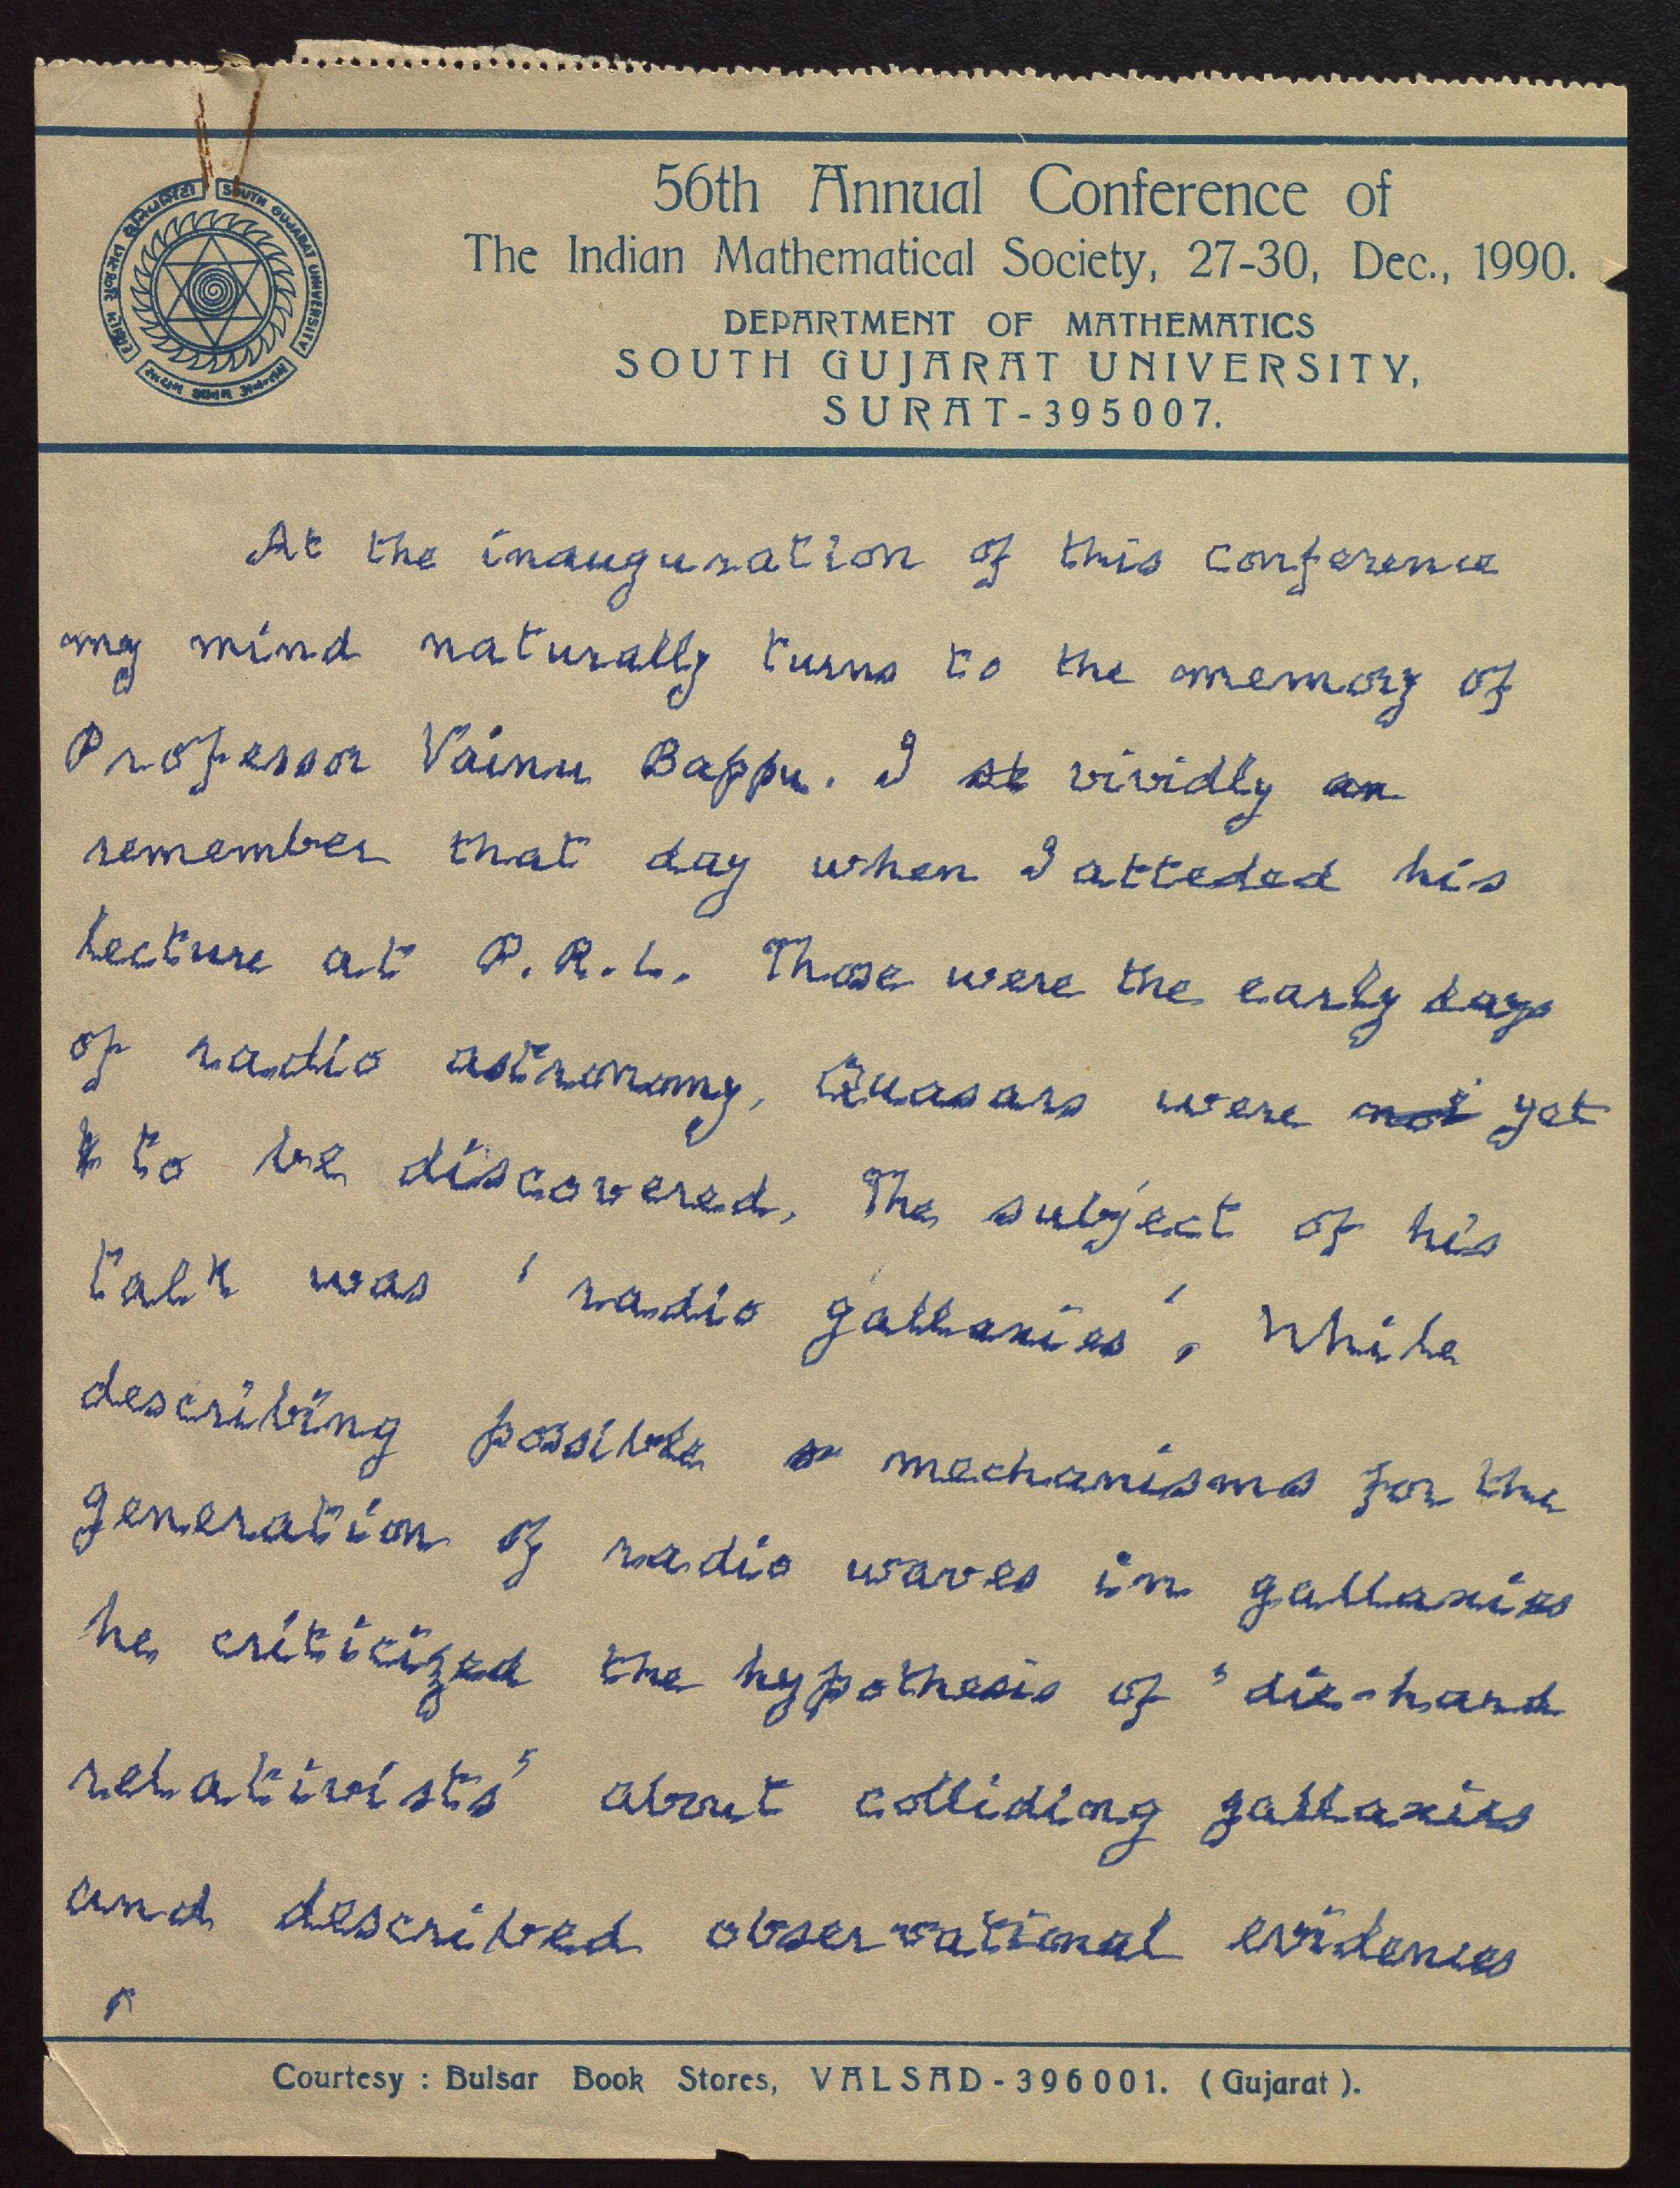 56th Annual Conference of
The Indian Mathematical Society, 27-30, Dec., 1990.
DEPARTMENT OF MATHEMATICS
SOUTH GUJARAT UNIVERSITY,
SURAT-395007.
SOUTH GUJARAT UNIVERSITY
At the inauguration of this conference
my mind naturally turns to the memory of
Professor Vainu Bappu. I st vividly an
remember that day when I atteded his
lecture at P.R.L. Those were the early days
of radio astronomy, Quasars were not yet
to be discovered. The subject of his
talk was 'radio gallaxies'. While
describing possible mechanisms for the
generation of radio waves in gallaxies
he criticized the hypothesis of 'die-hard
relativists' about colliding gallaxies
and described observational evidences
Courtesy : Bulsar Book Stores, VALSAD-396001. (Gujarat).